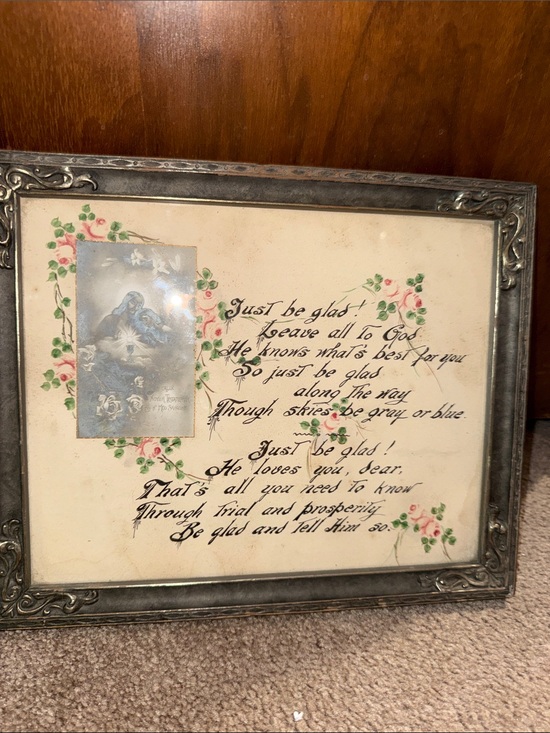 Just be glad!
Leave all to God
He knows what's best for you
So just be glad
along the way
Though skies be gray or blue.
Just be glad!
He loves you, dear,
That's all you need to know
Through trial and prosperity
Be glad and tell Him so.